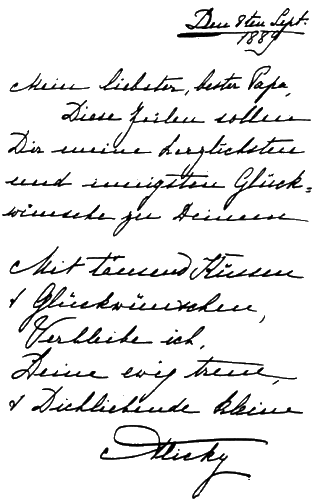 Den 8ten Sept.
1889
Mein liebster, bester Papa,
Diese Zeilen sollen
Dir meine herzlichsten
und innigsten Glück=
wünsche zu Deinem
Mit tausend Küssen
& Glückwünschen,
Verbleibe ich,
Deine ewig treue,
& Dichliebende kleine
Alicky